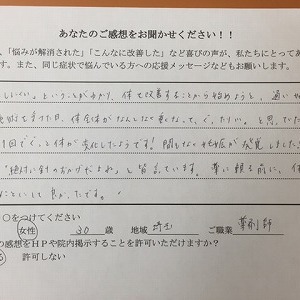 あなたのご感想をお聞かせください！！
、「悩みが解消された」「こんなに改善した」など喜びの声が、私たちにとってあ
す。また、同じ症状で悩んでいる方への応援メッセージなどもお願いします。
しにくい。ということがわかり、体を改善することから始めようと、通い
受けた日、体全体がなんとなく重くなって、ぐったり。と思
1回でぐっと体が変化したようです。間もなく妊娠が発覚しました
「絶対に針のおかげだよね」と皆言っています。薬に頼る前に、体
ことにして良かったです。
○をつけてください
女性 30 歳 地域 埼玉 ご職業 薬剤師
の感想をHPや院内掲示することを許可いただけますか？
る 許可しない